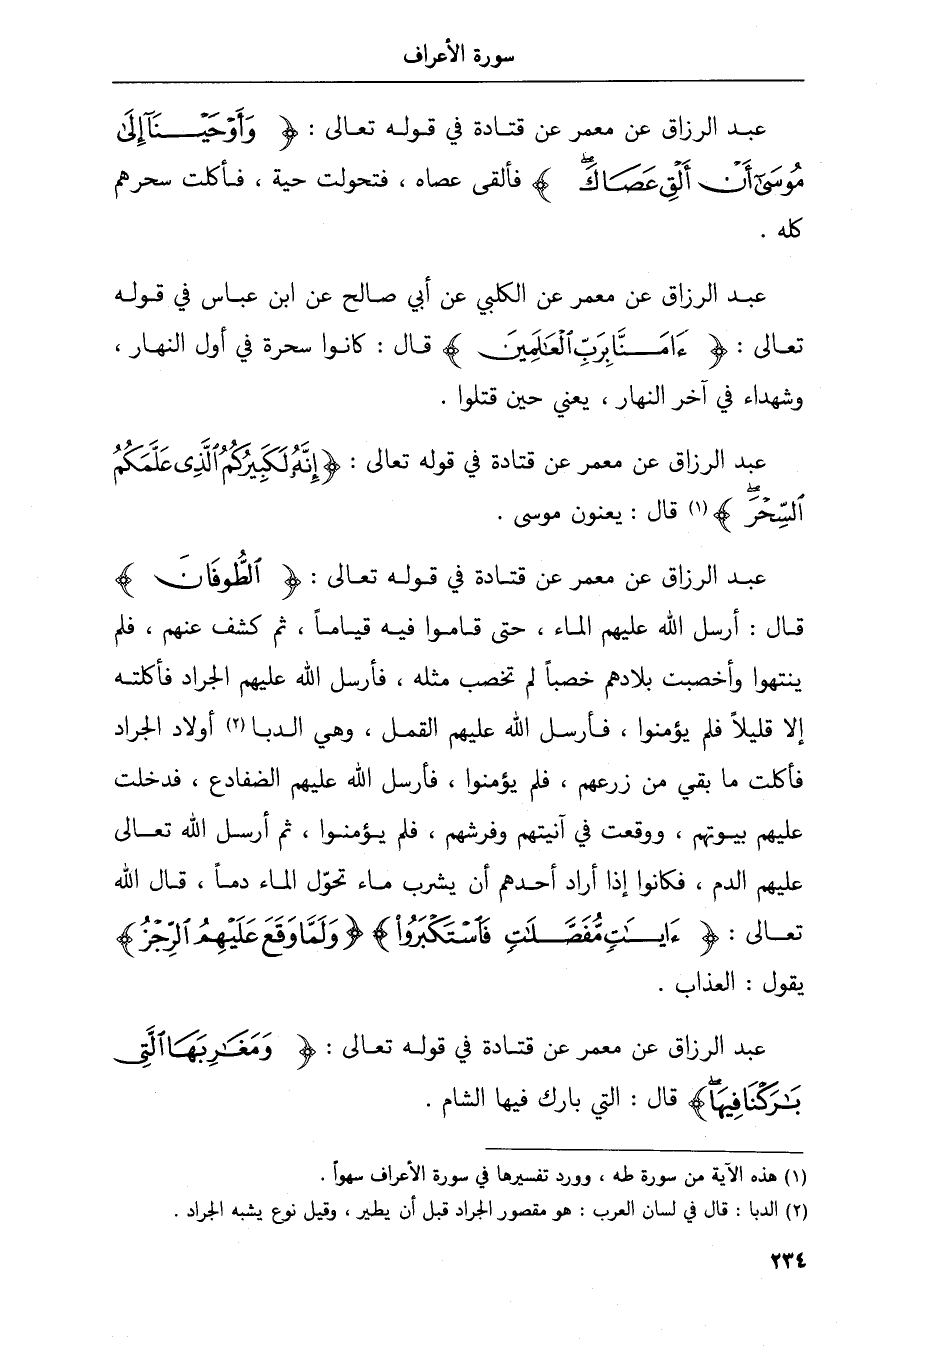 سورة الأعراف
عبد الرزاق عن معمر عن قتادة في قوله تعالى : ﴿ وَأَوْحَيْنَآ إِلَىٰ
مُوسَىٰٓ أَنْ أَلْقِ عَصَاكَۖ ﴾ فألقى عصاه ، فتحولت حية ، فأكلت سحرهم
كله .
عبد الرزاق عن معمر عن الكلبي عن أبي صالح عن ابن عباس في قوله
تعالى : ﴿ ءَامَنَّا بِرَبِّ ٱلْعَـٰلَمِينَ ﴾ قال : كانوا سحرة في أول النهار ،
وشهداء في آخر النهار ، يعني حين قتلوا .
عبد الرزاق عن معمر عن قتادة في قوله تعالى : ﴿ إِنَّهُۥ لَكَبِيرُكُمُ ٱلَّذِى عَلَّمَكُمُ
ٱلسِّحْرَۖ ﴾ (١) قال : يعنون موسى .
عبد الرزاق عن معمر عن قتادة في قوله تعالى : ﴿ ٱلطُّوفَانَ ﴾
قال : أرسل الله عليهم الماء ، حتى قاموا فيه قياماً ، ثم كشف عنهم ، فلم
ينتهوا وأخصبت بلادهم خصباً لم تخصب مثله ، فأرسل الله عليهم الجراد فأكلته
إلا قليلاً فلم يؤمنوا ، فأرسل الله عليهم القمل ، وهي الدبا (٢) أولاد الجراد
فأكلت ما بقي من زرعهم ، فلم يؤمنوا ، فأرسل الله عليهم الضفادع ، فدخلت
عليهم بيوتهم ، ووقعت في آنيتهم وفرشهم ، فلم يؤمنوا ، ثم أرسل الله تعالى
عليهم الدم ، فكانوا إذا أراد أحدهم أن يشرب ماء تحوّل الماء دماً ، قال الله
تعالى : ﴿ ءَايَـٰتٍ مُّفَصَّلَـٰتٍ فَٱسْتَكْبَرُوا۟ ﴾ ﴿ وَلَمَّا وَقَعَ عَلَيْهِمُ ٱلرِّجْزُ ﴾
يقول : العذاب .
عبد الرزاق عن معمر عن قتادة في قوله تعالى : ﴿ وَمَغَـٰرِبَهَا ٱلَّتِى
بَـٰرَكْنَا فِيهَاۖ ﴾ قال : التي بارك فيها الشام .
(١) هذه الآية من سورة طه ، وورد تفسيرها في سورة الأعراف سهواً .
(٢) الدبا : قال في لسان العرب : هو مقصور الجراد قبل أن يطير ، وقيل نوع يشبه الجراد .
٢٣٤